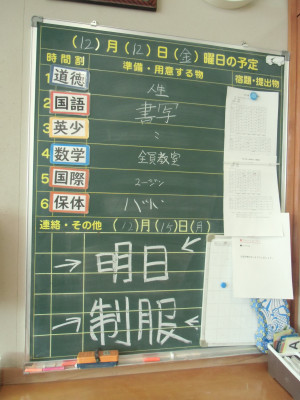 (12)月(12)日(金)曜日の予定
時間割 準備・用意する物 宿題・提出物
道徳 人生
2 国語 書写
3 英少 〃
4 数学 全員教室
5 国際 ユージン
6 保体 バド
連絡・その他 (12)月(15)日(月)
→明日←
→制服←